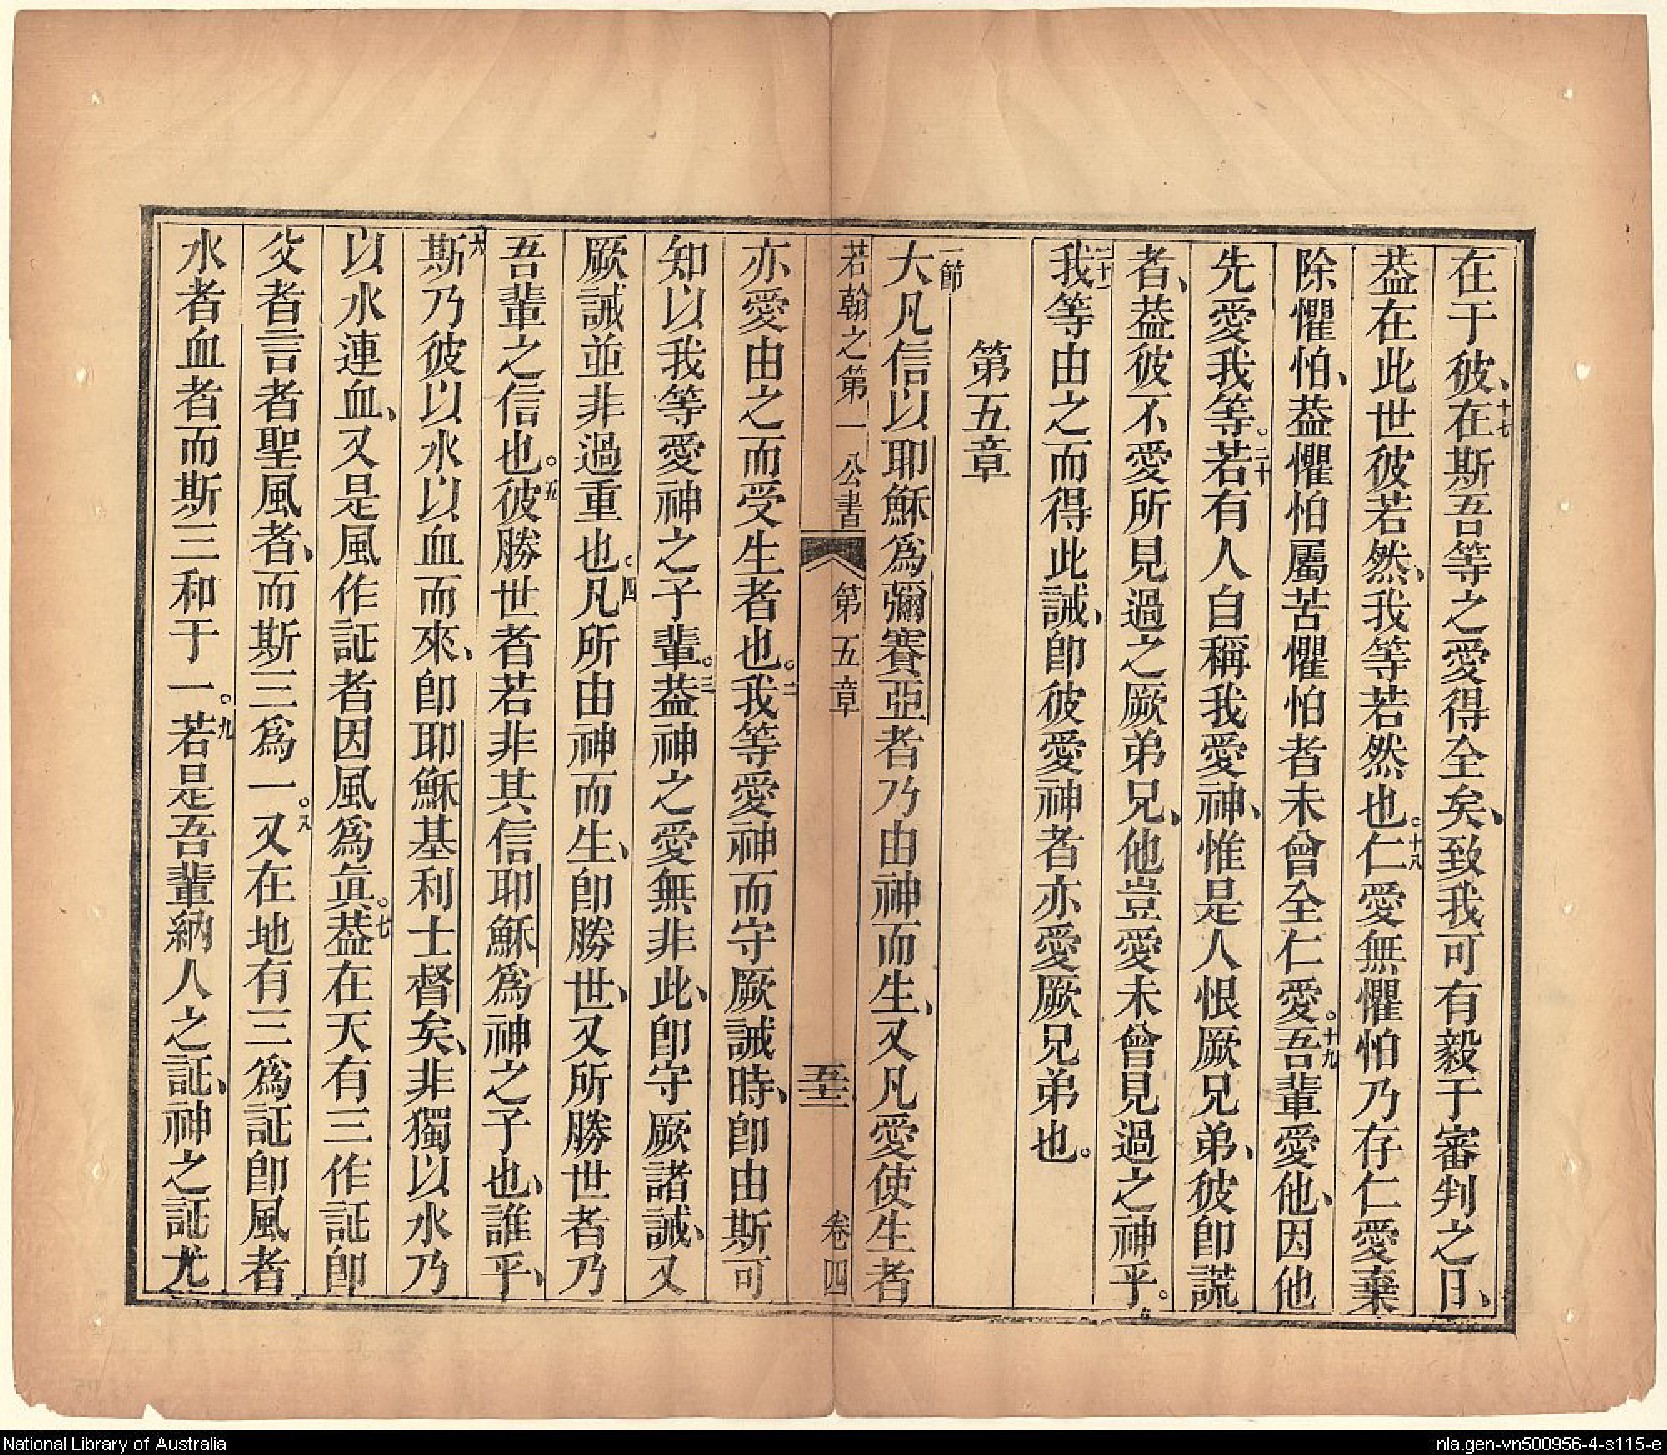 在于彼、十七在斯吾等之愛得全矣、致我可有毅于審判之日、
葢在此世彼若然、我等若然也。十八仁愛無懼怕乃存仁愛棄
除懼怕、葢懼怕屬苦懼怕者未曾全仁愛。十九吾輩愛他、因他
先愛我等。二十若有人自稱我愛神、惟是人恨厥兄弟、彼卽謊
者、葢彼不愛所見過之厥弟兄、他豈愛未曾見過之神乎。
二十一我等由之而得此誡、卽彼愛神者亦愛厥兄弟也。
第五章
一節大凡信以耶穌為彌賽亞者乃由神而生、又凡愛使生者
若翰之第一公書 第五章 卷四
亦愛由之而受生者也。二我等愛神而守厥誡時、卽由斯可
知以我等愛神之子輩。三葢神之愛無非此、卽守厥諸誡、又
厥誡並非過重也。四凡所由神而生、卽勝世、又所勝世者乃
吾輩之信也。五彼勝世者若非其信耶穌為神之子也、誰乎、
六斯乃彼以水以血而來、卽耶穌基利士督矣、非獨以水乃
以水連血、又是風作証者因風為眞。七葢在天有三作証卽
父者言者聖風者、而斯三為一。八又在地有三為証卽風者
水者血者而斯三和于一。九若是吾輩納人之証、神之証尤
National Library of Australia
nla.gen-vn500956-4-s115-e